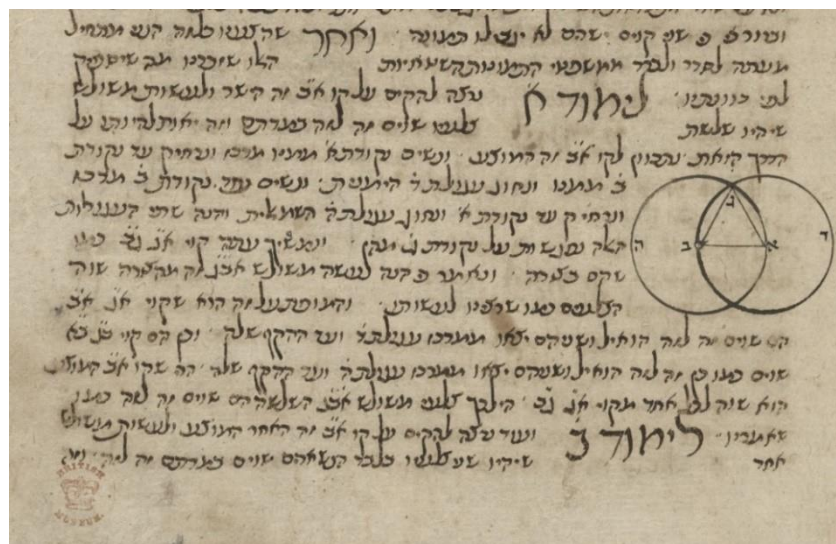 שני קוים ישרים לא יגבילו תמונה ואחר שהצענו כזה הנה נתחיל
מעתה לסדר ולבאר ממשפטי התמונות השטחיות האלו שזכרנו מה שיספיק
לפי כוונתינו לימוד א נרצה להקים על קו אב זה הישר ולעשות משולש
שיהיו שלשת צלעיו שוים זה לזה במדתם וזה יאות להיותו על
הדרך הזאת נתכוון לקו אב זה המוצע ונשים נקודת א ממנו מרכז ונרחיק עד נקודת
ב ממנו ונחוג עגולת ד הימנית ונשים עוד נקודת ב מרכז
ונרחיק עד נקודת א ונחוג עגולת ה השמאלית והנה שתי העגולות
האלה נפגשות על נקודת ג מהן ונמשיך עתה קוי אג גב כמו
שהם בצורה ונאמר כי הנה נעשה משולש אבג זה מהצורה שוה
הצלעות כמו שרצינו לעשותו והמופת על זה הוא שקוי אג אב
הם שוים זה לזה הואיל ושניהם יצאו ממרכז עגולת ד ועד ההקף שלה וכן הם קוי בג בא
שוים כמו כן זה לזה הואיל ושניהם יצאו ממרכז עגולת ה ועד ההקף שלה הנה שקו אב המוצע
הוא שוה לכל אחד מקוי אג גב הילכך צלעי משולש אבג השלשה הם שוים זה לזה כמו
שאמרנו לימוד ב ועוד נרצה להקים על קו אב זה האחר המוצע ולעשות משולש
אחר שיהיו שני צלעיו בלבד הנשארים שוים במדתם זה לזה
ג
ה ב א ד
BRITISH
MUSEUM